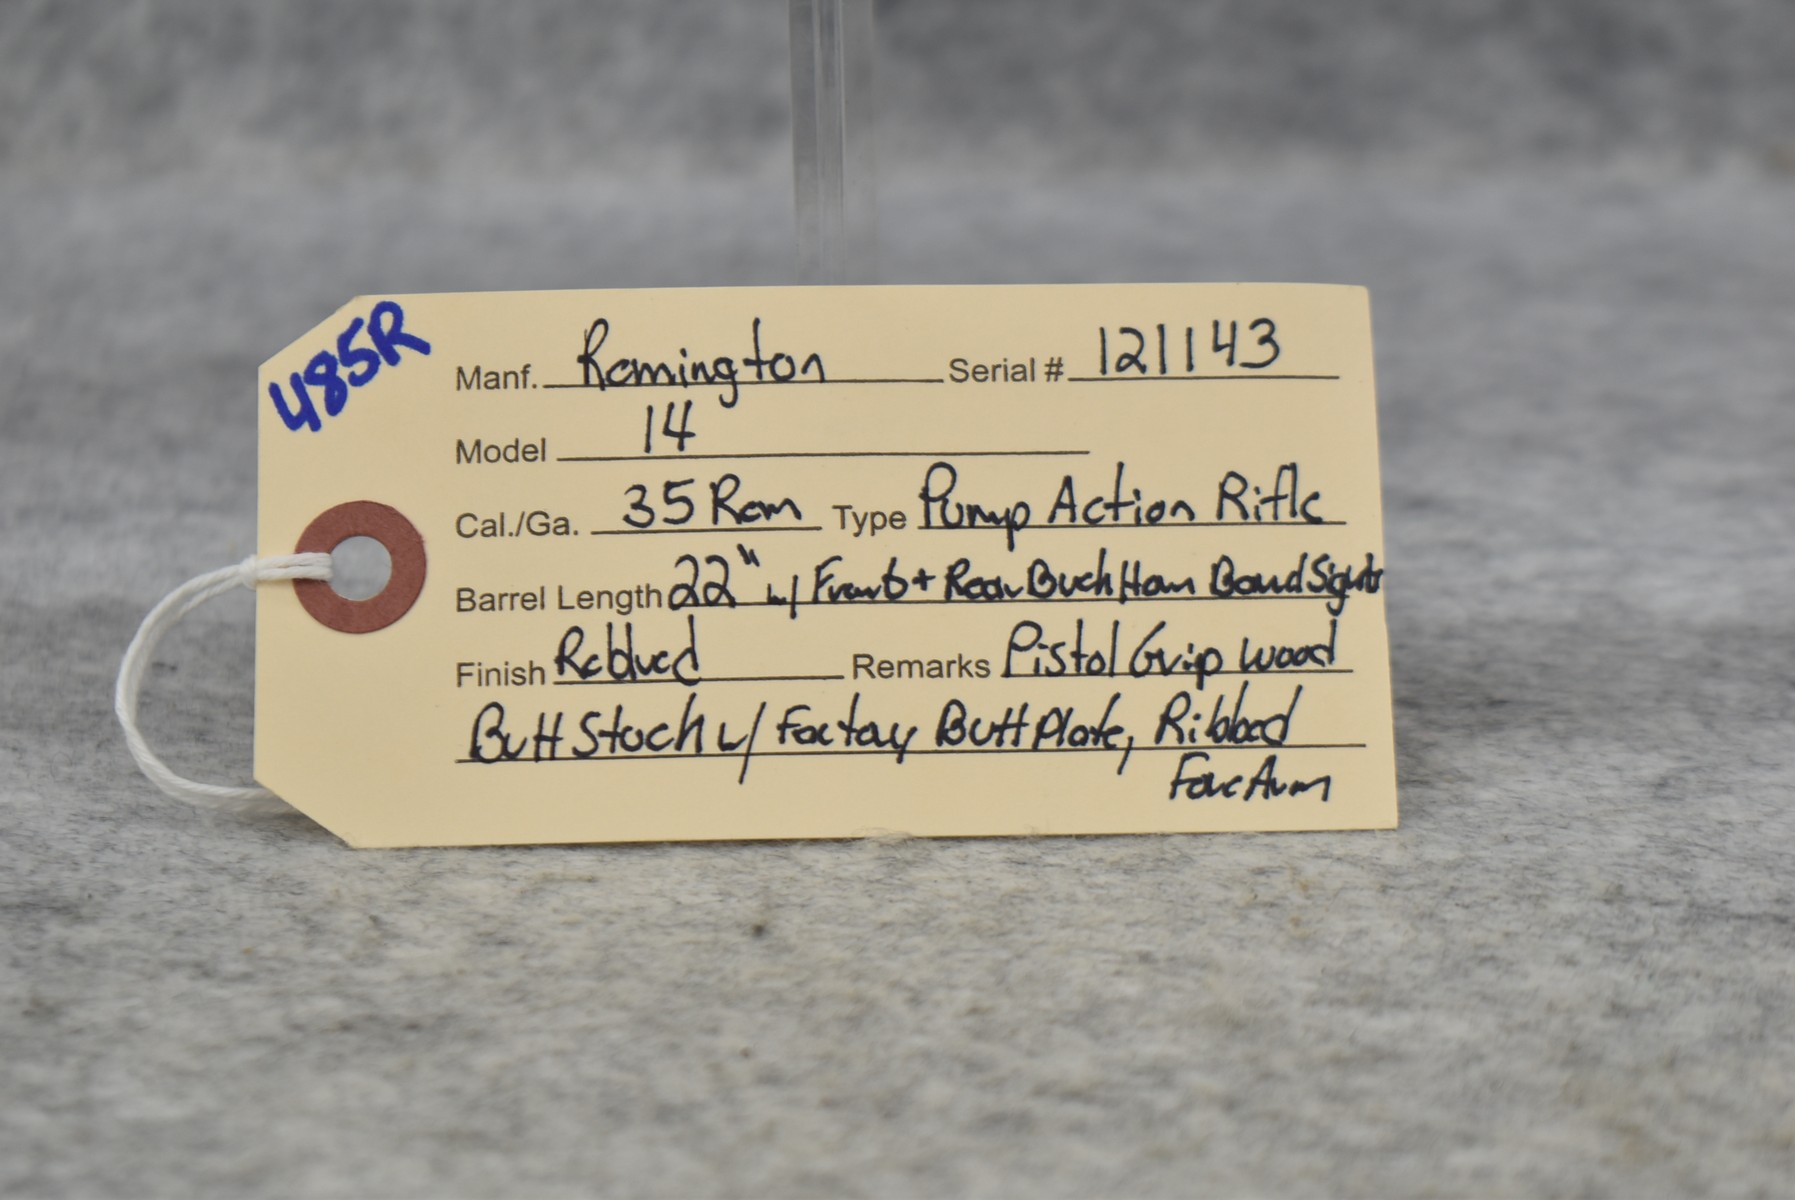 485R
Manf. Remington Serial # 121143
Model 14
Cal./Ga. 35 Rem Type Pump Action Rifle
Barrel Length 22" w/ Front + Rear Buck Horn Bead Sights
Finish Reblued Remarks Pistol Grip Wood
Butt Stock w/ Factory Butt Plate, Ribbed
Fore Arm